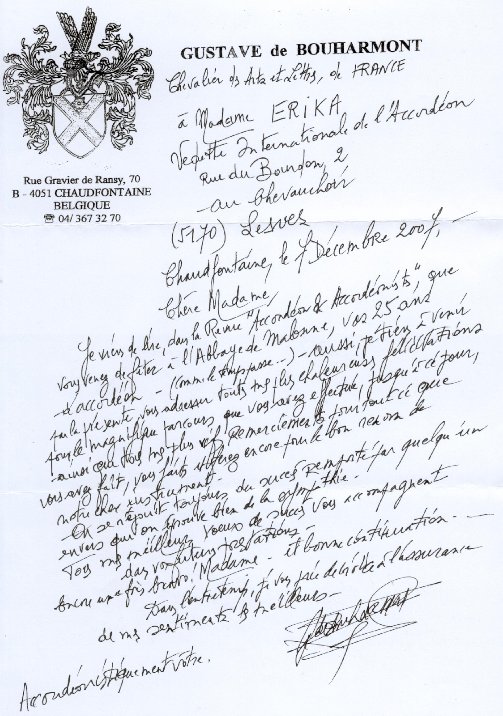 GUSTAVE de BOUHARMONT
Chevalier des Arts et Lettres, de FRANCE
Rue Gravier de Ransy, 70
B - 4051 CHAUDFONTAINE
BELGIQUE
☎ 04/ 367 32 70
à Madame ERIKA
Vedette Internationale de l'Accordéon
Rue du Bourdon, 2
au Chevauchoir
(5170) Lesves
Chaudfontaine, le 7 Décembre 2007,
Chère Madame,
Je viens de lire, dans la Revue "Accordéon & Accordéonists", que
vous venez de fêter à l'Abbaye de Malonne, vos 25 ans
d'accordéon - (Comme le temps passe...) - aussi, je tiens à venir
par la présente, vous adresser toutes mes plus chaleureuses félicitations
pour le magnifique parcours que vous avez effectué, jusqu'à ce jour,
ainsi que tous mes plus vifs Remerciements pour tout ce que
vous avez fait, vous faites et ferez encore pour le bon renom de
notre cher instrument.
On se réjouit toujours du succès remporté par quelqu'un
envers qui on éprouve bien de la sympathie.
Tous mes meilleurs voeux de succès vous accompagnent
dans vos futures prestations -
Encore une fois bravo, Madame - et bonne continuation -
Dans l'entretemps, je vous prie de croire à l'assurance
de mes sentiments les meilleurs -
Accordéonistiquement vôtre.